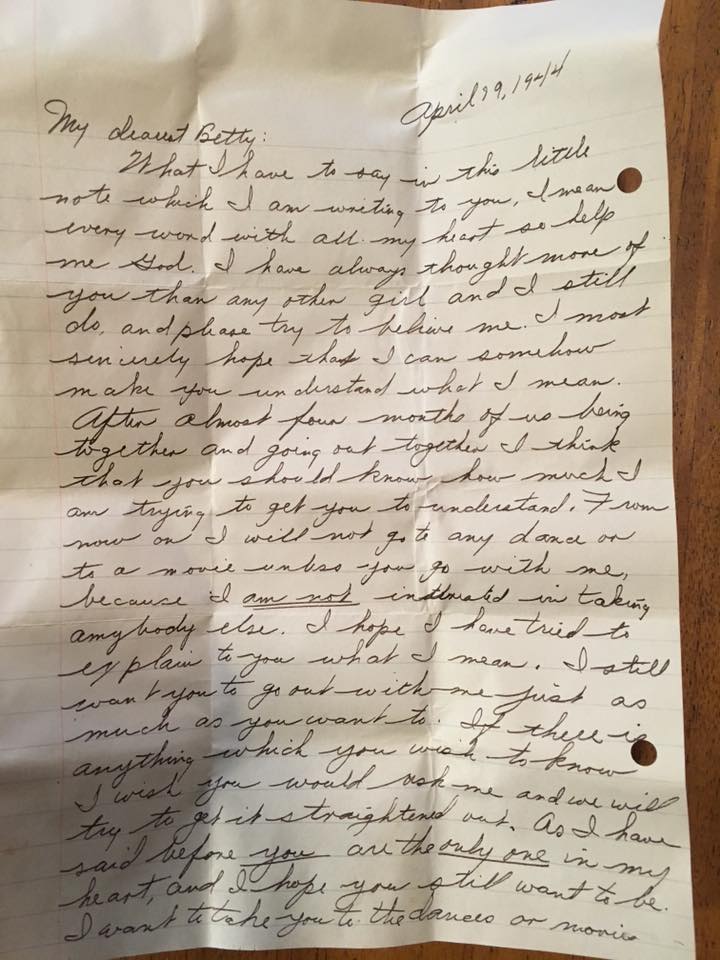 April 29, 1944
My dearest Betty:
What I have to say in this little
note which I am writing to you, I mean
every word with all my heart so help
me God. I have always thought more of
you than any other girl and I still
do, and please try to believe me. I most
sincerely hope that I can somehow
make you understand what I mean.
After almost four months of us being
together and going out together I think
that you should know how much I
am trying to get you to understand. From
now on I will not go to any dance or
to a movie unless you go with me,
because I am not interested in taking
anybody else. I hope I have tried to
explain to you what I mean. I still
want you to go out with me just as
much as you want to. If there is
anything which you wish to know
I wish you would ask me and we will
try to get it straightened out. As I have
said before you are the only one in my
heart, and I hope you still want to be.
I want to take you to the dances or movies